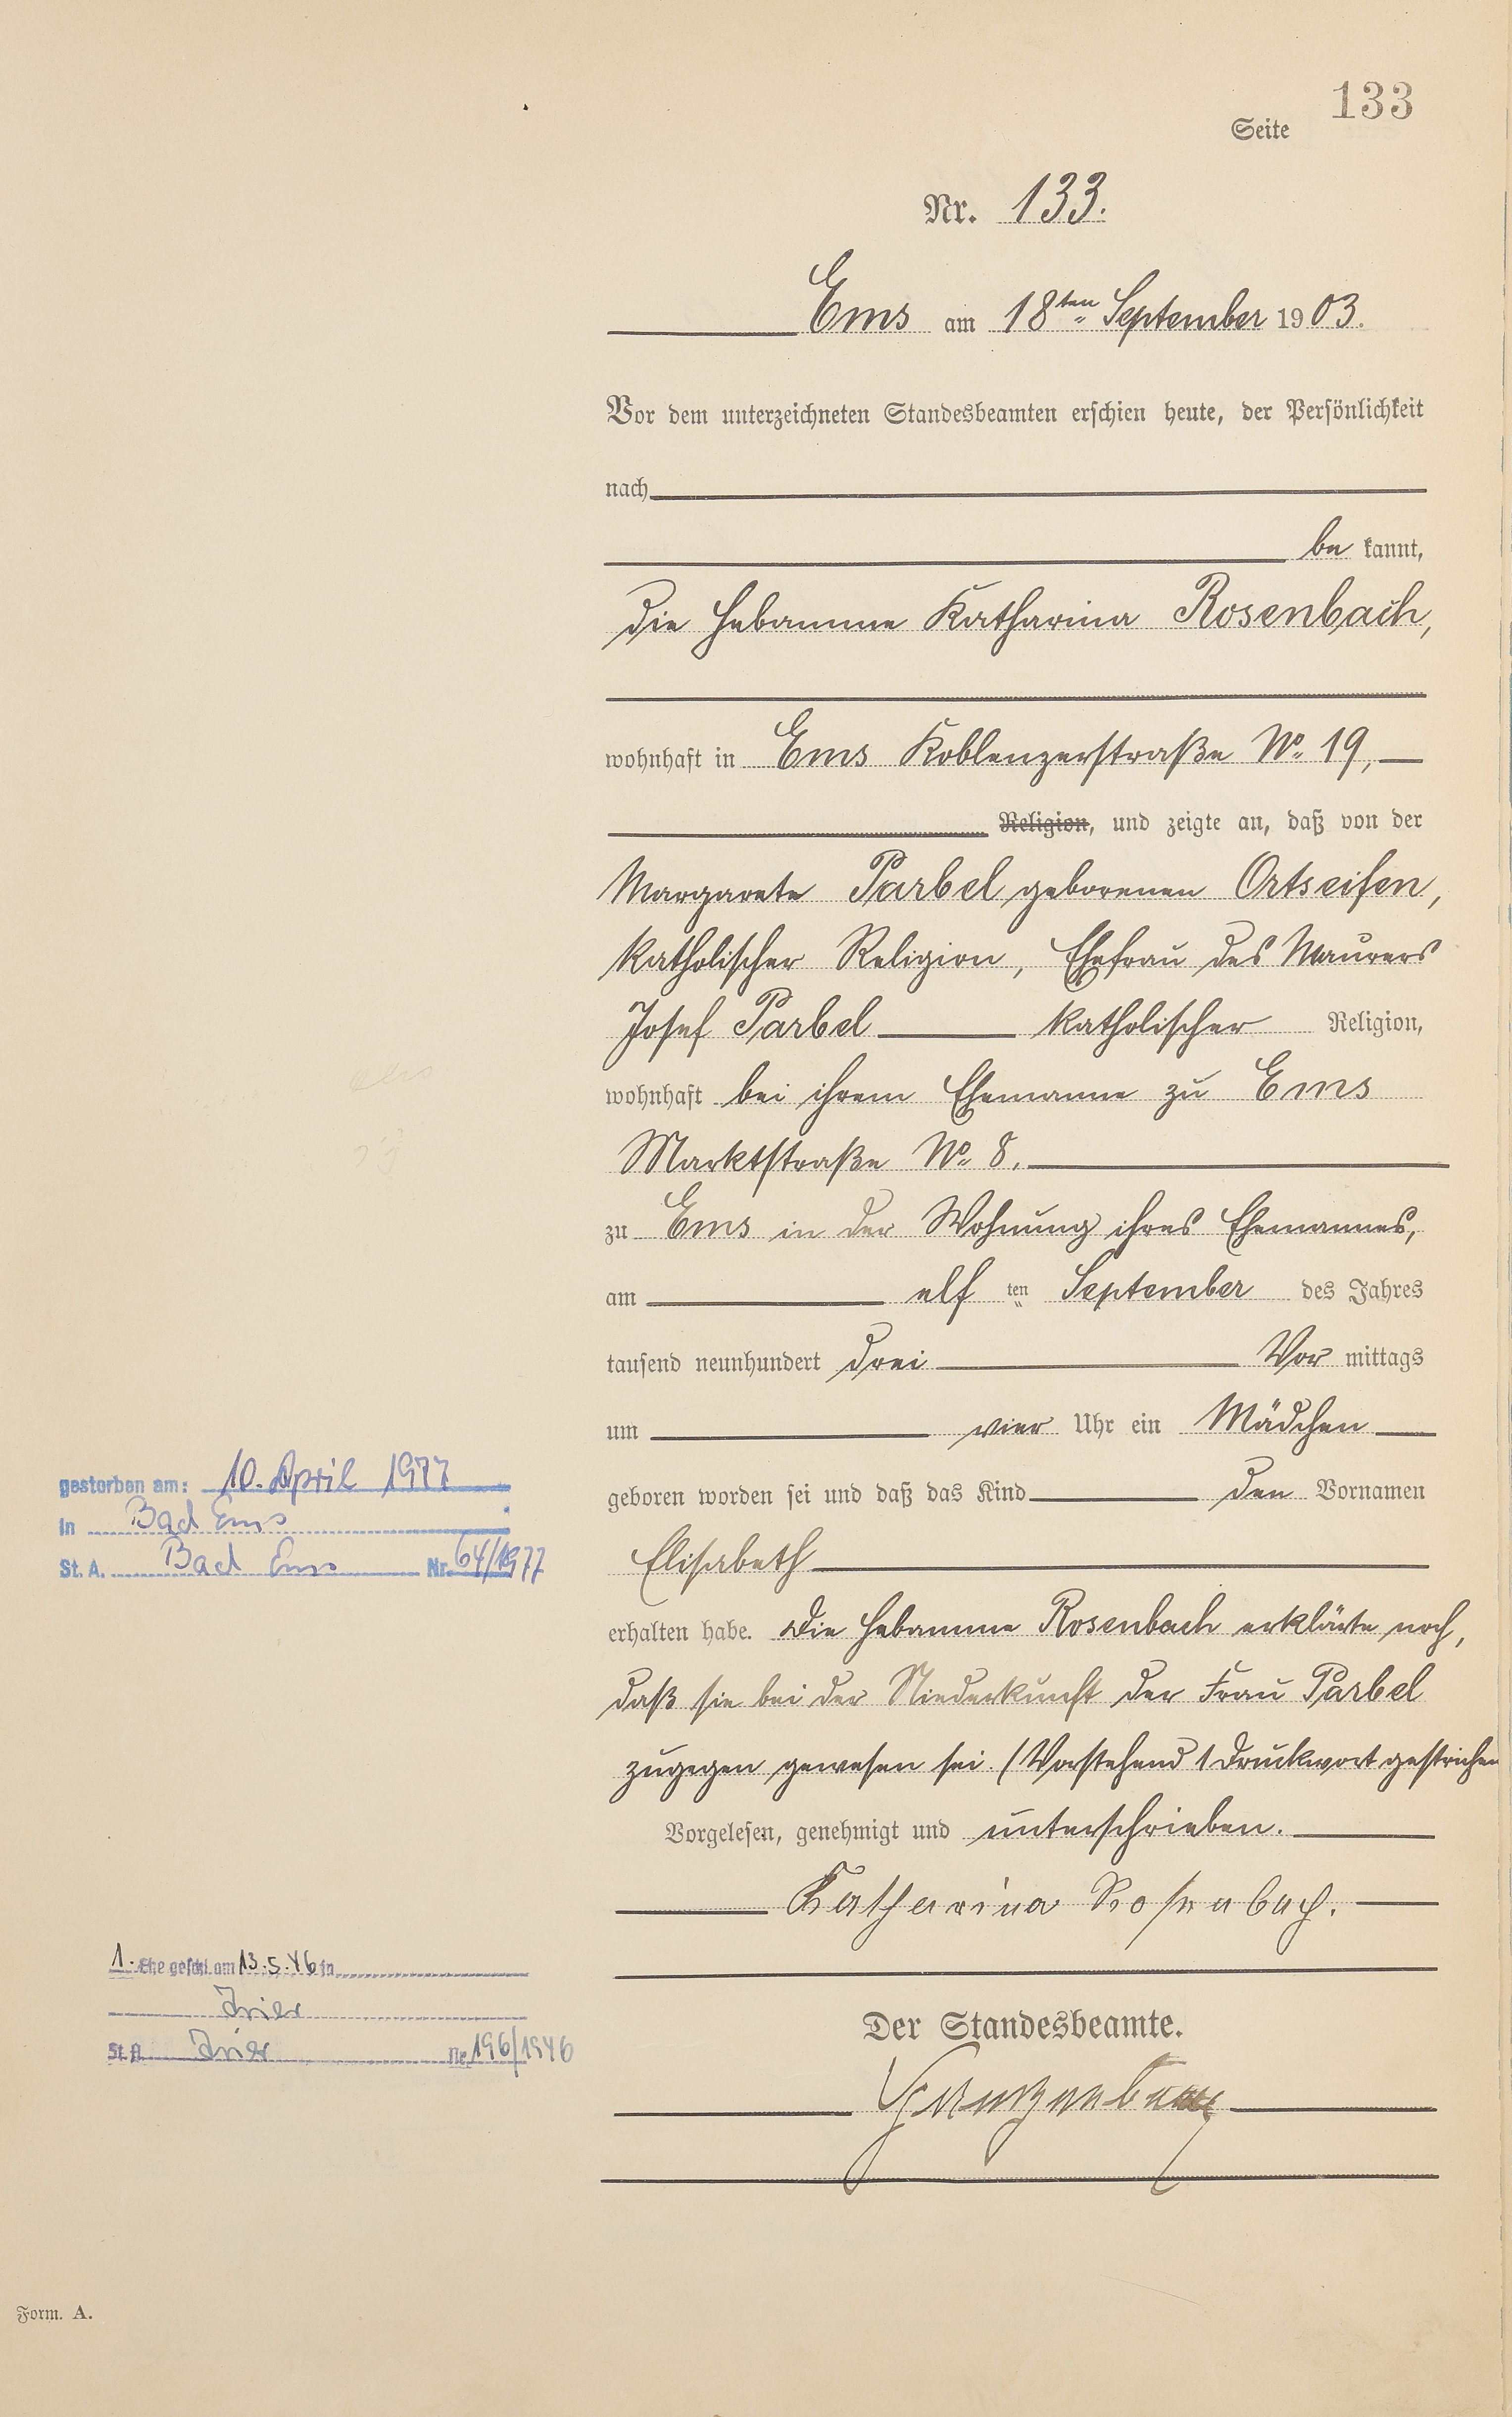 Seite 133
Nr. 133.
Ems am 18ten September 1903.
Vor dem unterzeichneten Standesbeamten erschien heute, der Persönlichkeit
nach
be kannt,
die Hebamme Katharina Rosenbach,
wohnhaft in Ems Koblenzerstraße No 19,
Religion, und zeigte an, daß von der
Margarete Parbel geborenen Ortseifen,
katholischer Religion, Ehefrau des Maurers
Josef Parbel katholischer Religion,
wohnhaft bei ihrem Ehemanne zu Ems
Marktstraße No 8.
zu Ems in der Wohnung ihres Ehemannes,
am elf ten September des Jahres
tausend neunhundert drei Vor mittags
um vier Uhr ein Mädchen
geboren worden sei und daß das Kind den Vornamen
Elisabeth
erhalten habe. Die Hebamme Rosenbach erklärte noch,
daß sie bei der Niederkunft der Frau Parbel
zugegen gewesen sei. (Vorstehend 1 Druckwort gestrichen
Vorgelesen, genehmigt und unterschrieben.
Katharina Rosenbach.
Der Standesbeamte.
gestorben am: 10. April 1977
in Bad Ems
St. A. Bad Ems Nr. 64/1977
1. Ehe geschl. am 13.5.46 in
Trier
St. A. Trier Nr. 196/1946
Form. A.